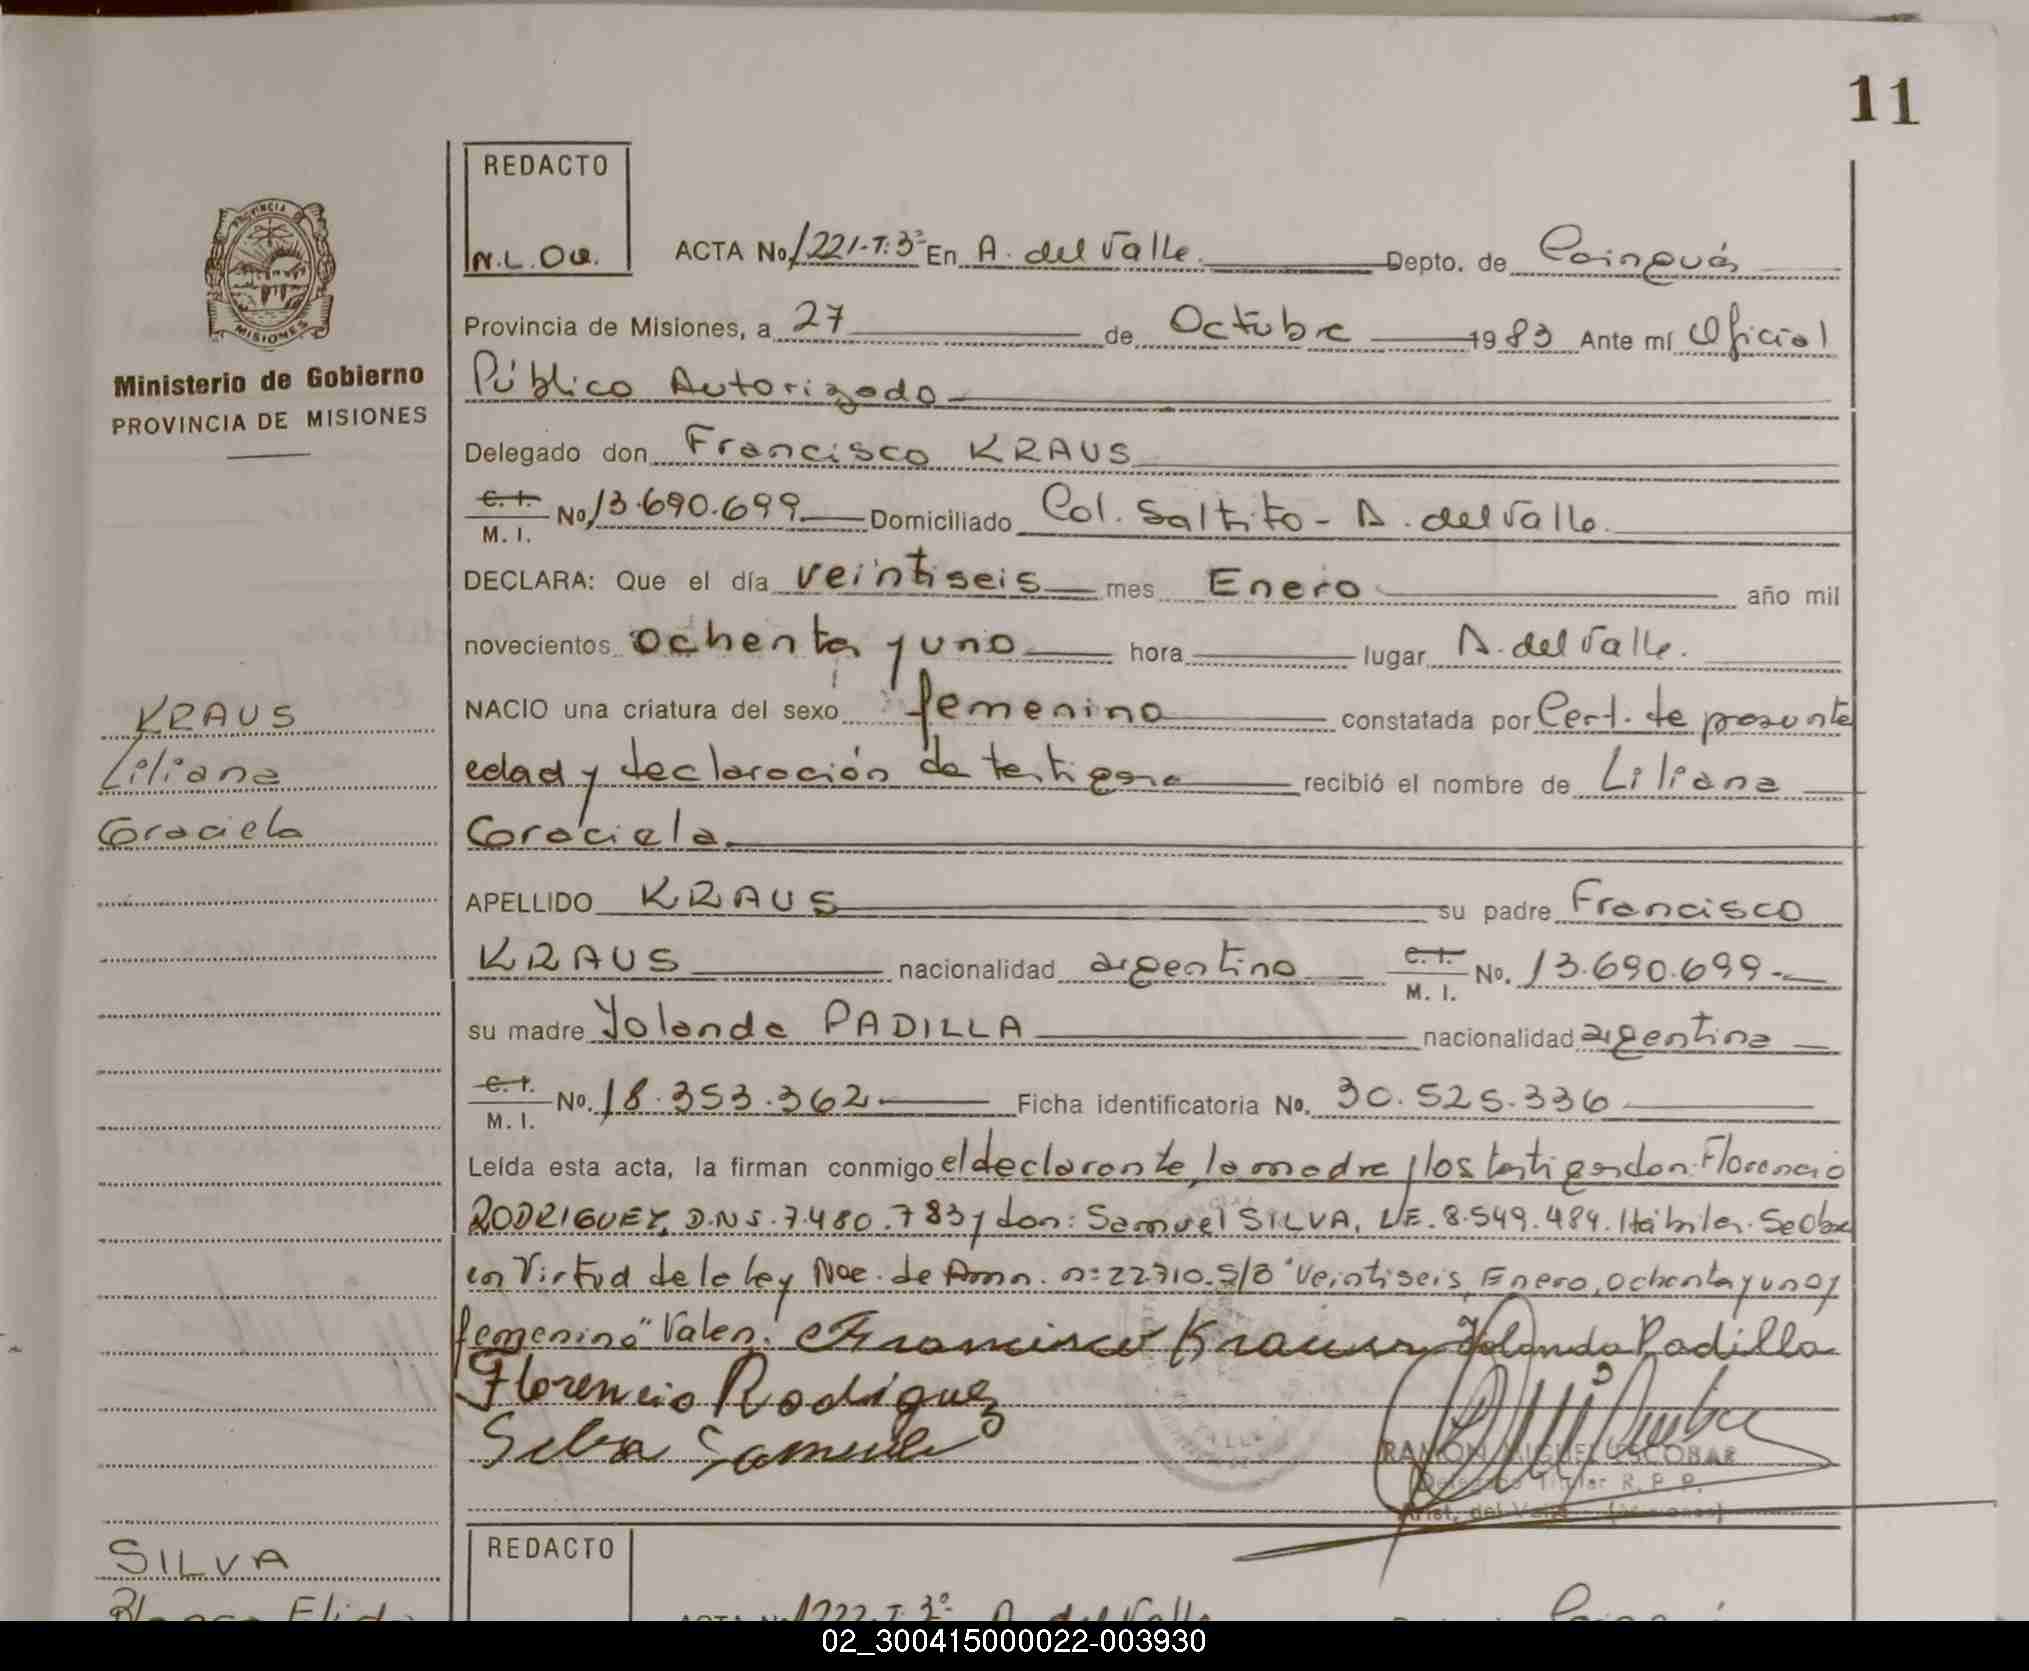 11
REDACTO
N.L.Ov.
ACTA No 1221-T:3º En A. del Valle. Depto. de Cainguás
Provincia de Misiones, a 27 de Octubre 1983 Ante mí Oficial
Público Autorizado
Delegado don Francisco KRAUS
C. I. M. I. No 13.690.699 Domiciliado Col. Saltito - A. del Valle.
DECLARA: Que el día veintiseis mes Enero año mil
novecientos ochenta y uno hora lugar A. del Valle.
NACIO una criatura del sexo femenino constatada por Cert. de presunta
edad y declaración de testigos recibió el nombre de Liliana
Graciela
APELLIDO KRAUS su padre Francisco
KRAUS nacionalidad argentino C. I. M. I. No. 13.690.699.-
su madre Yolanda PADILLA nacionalidad argentina
C. I. M. I. No. 18.353.362 Ficha identificatoria No. 30.525.336
Leída esta acta, la firman conmigo el declarante, la madre y los testigos don: Florencio
RODRIGUEZ, D.N.I. 7.480.783 y don: Samuel SILVA, L.E. 8.549.484. Hábiles. Se Obra
en Virtud de la Ley Nac. de Amn. nº 22710. S/B "Veintiseis, Enero, ochenta y uno y
femenino" Valen. Francisco Kraus Yolanda Padilla
Florencio Rodriguez
Silva Samuel
RAMON MIGUEL ESCOBAR
Delegado Titular R. P. P.
Arist. del Valle (Misiones)
PROVINCIA
MISIONES
Ministerio de Gobierno
PROVINCIA DE MISIONES
KRAUS
Liliana
Graciela
SILVA
Blanca Elida
REDACTO
ACTA No 1222-T.3º A. del Valle
02_300415000022-003930